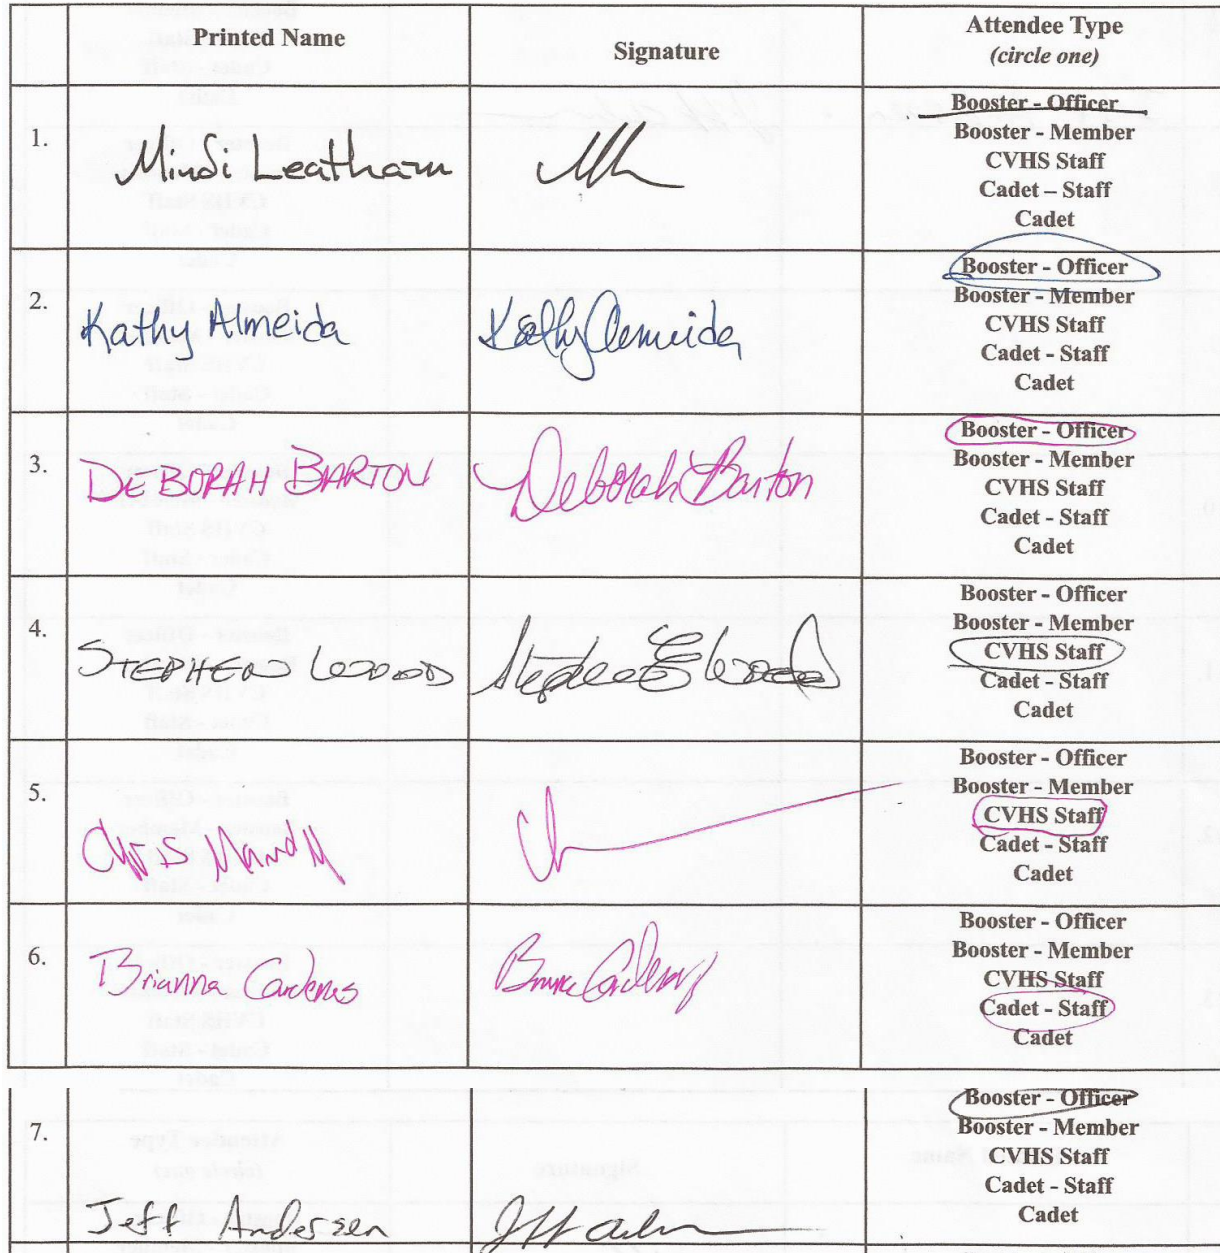 Printed Name
Signature
Attendee Type
(circle one)
1.
Mindi Leatham
Booster - Officer
Booster - Member
CVHS Staff
Cadet – Staff
Cadet
2.
Kathy Almeida
Kathy Almeida
Booster - Officer
Booster - Member
CVHS Staff
Cadet - Staff
Cadet
3.
DEBORAH BARTON
Deborah Barton
Booster - Officer
Booster - Member
CVHS Staff
Cadet - Staff
Cadet
4.
STEPHEN WOOD
Stephen E Wood
Booster - Officer
Booster - Member
CVHS Staff
Cadet - Staff
Cadet
5.
Chris
Booster - Officer
Booster - Member
CVHS Staff
Cadet - Staff
Cadet
6.
Brianna Cardenas
Booster - Officer
Booster - Member
CVHS Staff
Cadet - Staff
Cadet
7.
Jeff Andersen
Booster - Officer
Booster - Member
CVHS Staff
Cadet - Staff
Cadet